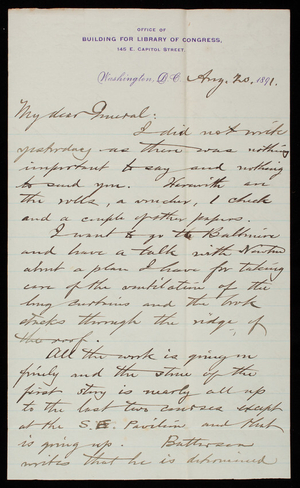 OFFICE OF
BUILDING FOR LIBRARY OF CONGRESS,
145 E. CAPITOL STREET.
Washington, D.C. Aug. 20, 1891.
My dear General:
I did not write
yesterday as there was nothing
important to say and nothing
to send you. Herewith are
the rolls, a voucher, 1 check
and a couple of other papers.
I want to go to Baltimore
and have a talk with
about a plan I have for taking
care of the ventilation of the
long curtains and the book
stacks through the ridge of
the roof.
All the work is going on
finely and the stone of the
first story is nearly all up
to the last two courses except
at the S.E. Pavilion and that
is going up. Batterson
writes that he is determined